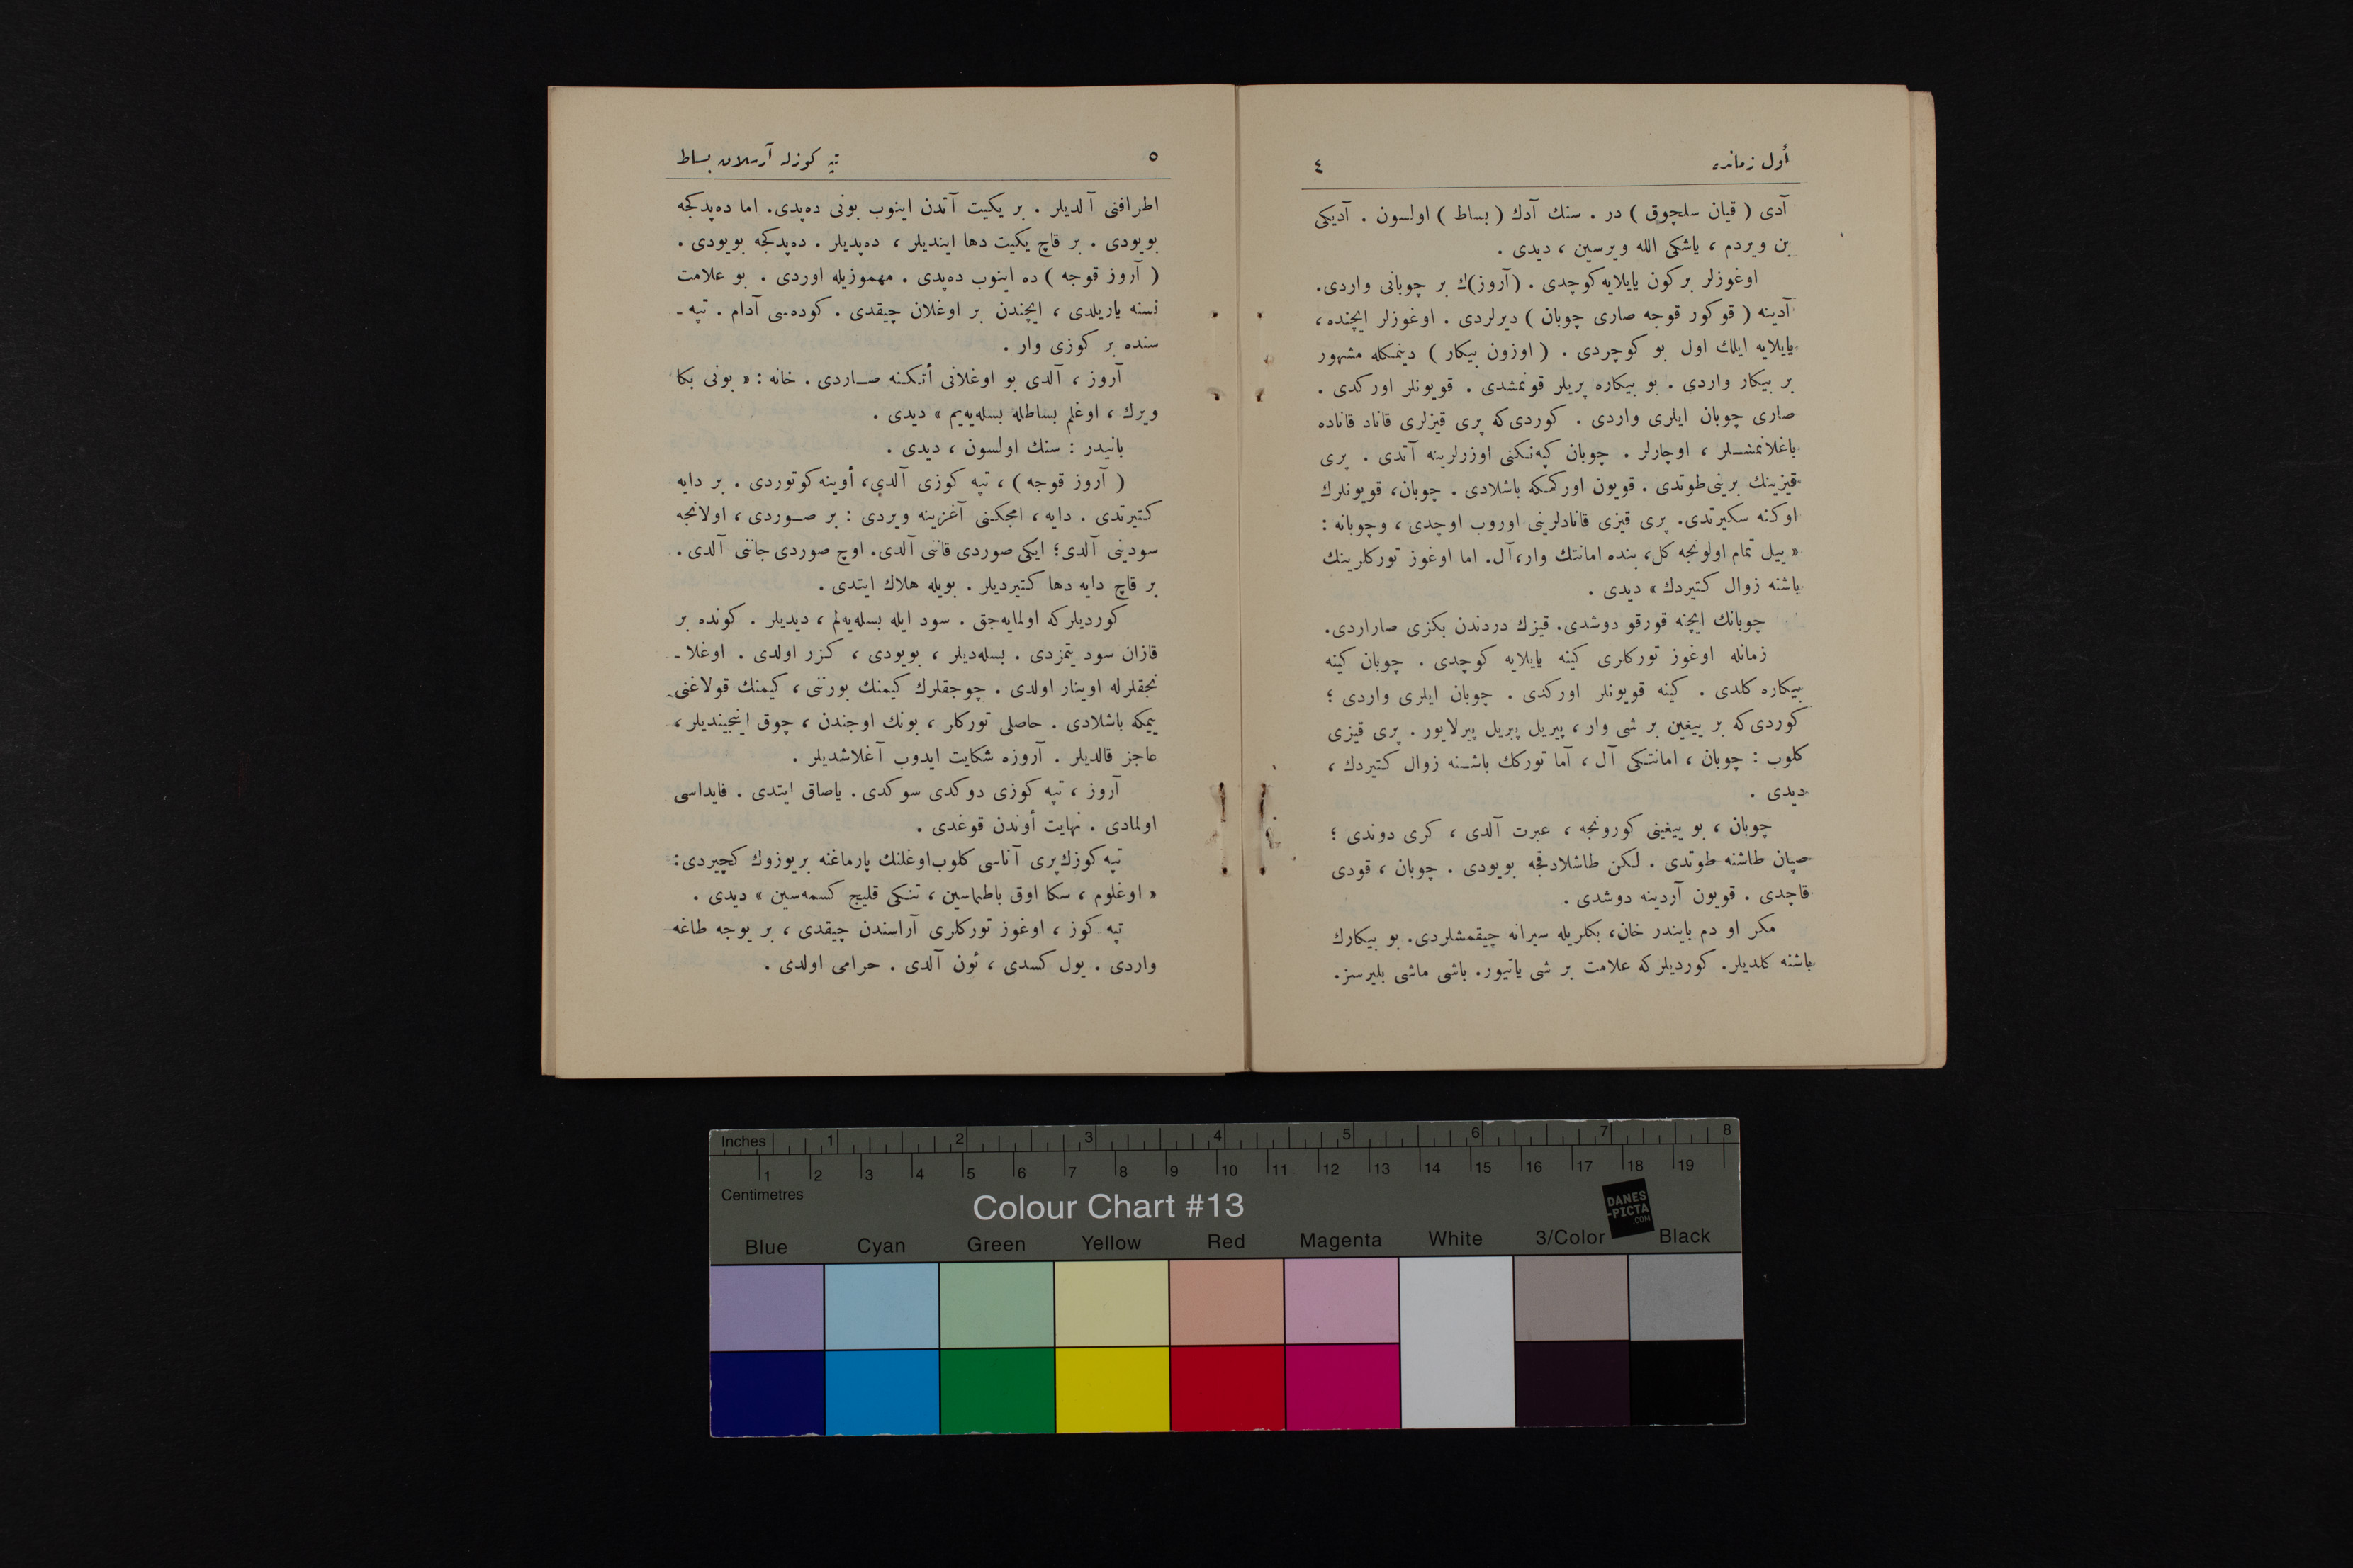 أول زمانده ٤
آدی ( قیان سلچوق ) در . سنك آدك ( بساط ) اولسون . آدیکی
بن ویردم ، یاشکی الله ویرسین ، دیدی .
اوغوزلر برکون یایلایه کوچدی . (آروز)ك بر چوبانی واردی.
آدینه ( قوکور قوجه صاری چوبان ) دیرلردی . اوغوزلر ایچنده ،
یایلایه ایلك اول بو کوچردی . ( اوزون بیکار ) دینمکله مشهور
بر بیکار واردی . بو بیکاره پریلر قونمشدی . قویونلر اورکدی .
صاری چوبان ایلری واردی . کوردی که پری قیزلری قاناد قاناده
باغلانمشلر ، اوچارلر . چوبان کپه‌نکنی اوزرلرینه آتدی . پری
قیزینك برینی طوتدی . قویون اورکمکه باشلادی . چوبان، قویونلرك
اوکنه سکیرتدی. پری قیزی قانادلرینی اوروب اوچدی ، وچوبانه :
« ییل تمام اولونجه کل، بنده امانتك وار، آل. اما اوغوز تورکلرینك
باشنه زوال کتیردك » دیدی .
چوبانك ایچنه قورقو دوشدی. قیزك دردندن بکزی صاراردی.
زمانله اوغوز تورکلری کینه یایلایه کوچدی . چوبان کینه
بیکاره کلدی . کینه قویونلر اورکدی . چوبان ایلری واردی ؛
کوردی که بر ییغین بر شی وار ، پیریل پیریل پیرلایور . پری قیزی
کلوب : چوبان ، امانتکی آل ، آما تورکك باشنه زوال کتیردك ،
دیدی .
چوبان ، بو ییغینی کورونجه ، عبرت آلدی ، کری دوندی ؛
صپان طاشنه طوتدی . لکن طاشلادقجه بویودی . چوبان ، قودی
قاچدی . قویون آردینه دوشدی .
مکر او دم بایندر خان، بکلریله سیرانه چیقمشلردی. بو بیکارك
باشنه کلدیلر. کوردیلر که علامت بر شی یاتیور. باشی ماشی بلیرسز.
٥ تپه کوزله آرسلان بساط
اطرافنی آلدیلر . بر یکیت آتدن اینوب بونی ده‌پدی. اما ده‌پدکجه
بویودی . بر قاچ یکیت دها ایندیلر ، ده‌پدیلر . ده‌پدکجه بویودی .
( آروز قوجه ) ده اینوب ده‌پدی . مهموزیله اوردی . بو علامت
نسنه یاریلدی ، ایچندن بر اوغلان چیقدی . کوده‌سی آدام . تپه ـ
سنده بر کوزی وار .
آروز ، آلدی بو اوغلانی أتکنه صاردی . خانه : « بونی بکا
ویرك ، اوغلم بساطله بسله‌یه‌یم » دیدی .
بانیدر : سنك اولسون ، دیدی .
( آروز قوجه ) ، تپه کوزی آلدی، أوینه کوتوردی . بر دایه
کتیرتدی . دایه ، امجکنی آغزینه ویردی : بر صوردی ، اولانجه
سودینی آلدی؛ ایکی صوردی قاننی آلدی. اوچ صوردی جاننی آلدی.
بر قاچ دایه دها کتیردیلر . بویله هلاك ایتدی .
کوردیلر که اولمایه‌جق . سود ایله بسله‌یه‌لم ، دیدیلر . کونده بر
قازان سود یتمزدی . بسله‌دیلر ، بویودی ، کزر اولدی . اوغلا ـ
نجقلرله اوینار اولدی . چوجقلرك کیمنك بورننی ، کیمنك قولاغنی
ییمکه باشلادی . حاصلی تورکلر ، بونك اوجندن ، چوق اینجیندیلر ،
عاجز قالدیلر . آروزه شکایت ایدوب آغلاشدیلر .
آروز ، تپه کوزی دوکدی سوکدی. یاصاق ایتدی . فایداسی
اولمادی . نهایت أوندن قوغدی .
تپه کوزك پری آناسی کلوب اوغلنك پارماغنه بریوزوك کچیردی:
« اوغلوم ، سکا اوق باطماسین ، تنکی قلیچ کسمه‌سین » دیدی .
تپه کوز ، اوغوز تورکلری آراسندن چیقدی ، بر یوجه طاغه
واردی . یول کسدی ، ئون آلدی . حرامی اولدی .
Inches 1 2 3 4 5 6 7 8
1 2 3 4 5 6 7 8 9 10 11 12 13 14 15 16 17 18 19
Centimetres
Colour Chart #13
DANES
-PICTA
.COM
Blue Cyan Green Yellow Red Magenta White 3/Color Black